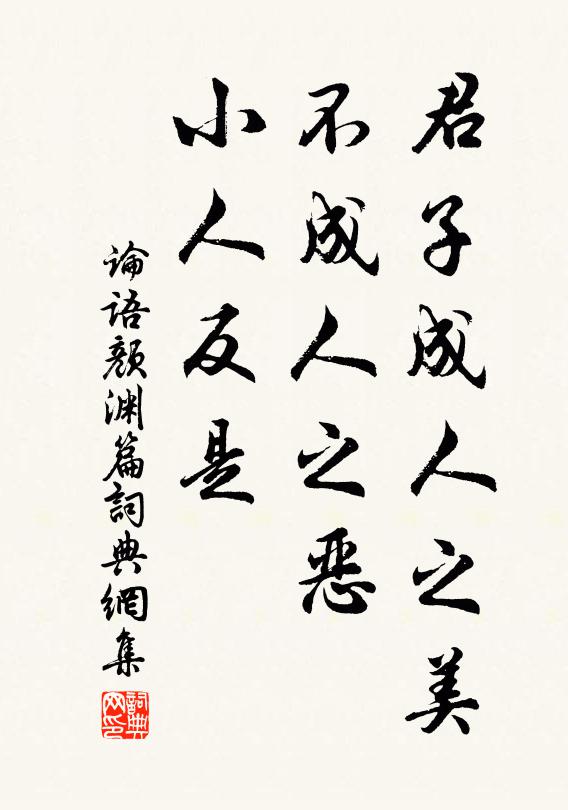 君子成人之美
不成人之恶
小人反是
論語顏渊篇詞典網集
詞典
网印